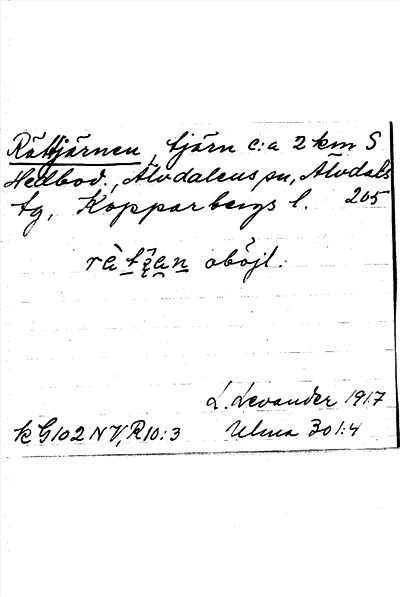 Råttjärnen, tjärn c:a 2 km S
Hedbod., Älvdalens sn, Älvdals
tg, Kopparbergs l. 205
oböjl.
L. Levander 1917
k G102 NV, R10:3 Ulma 301:4